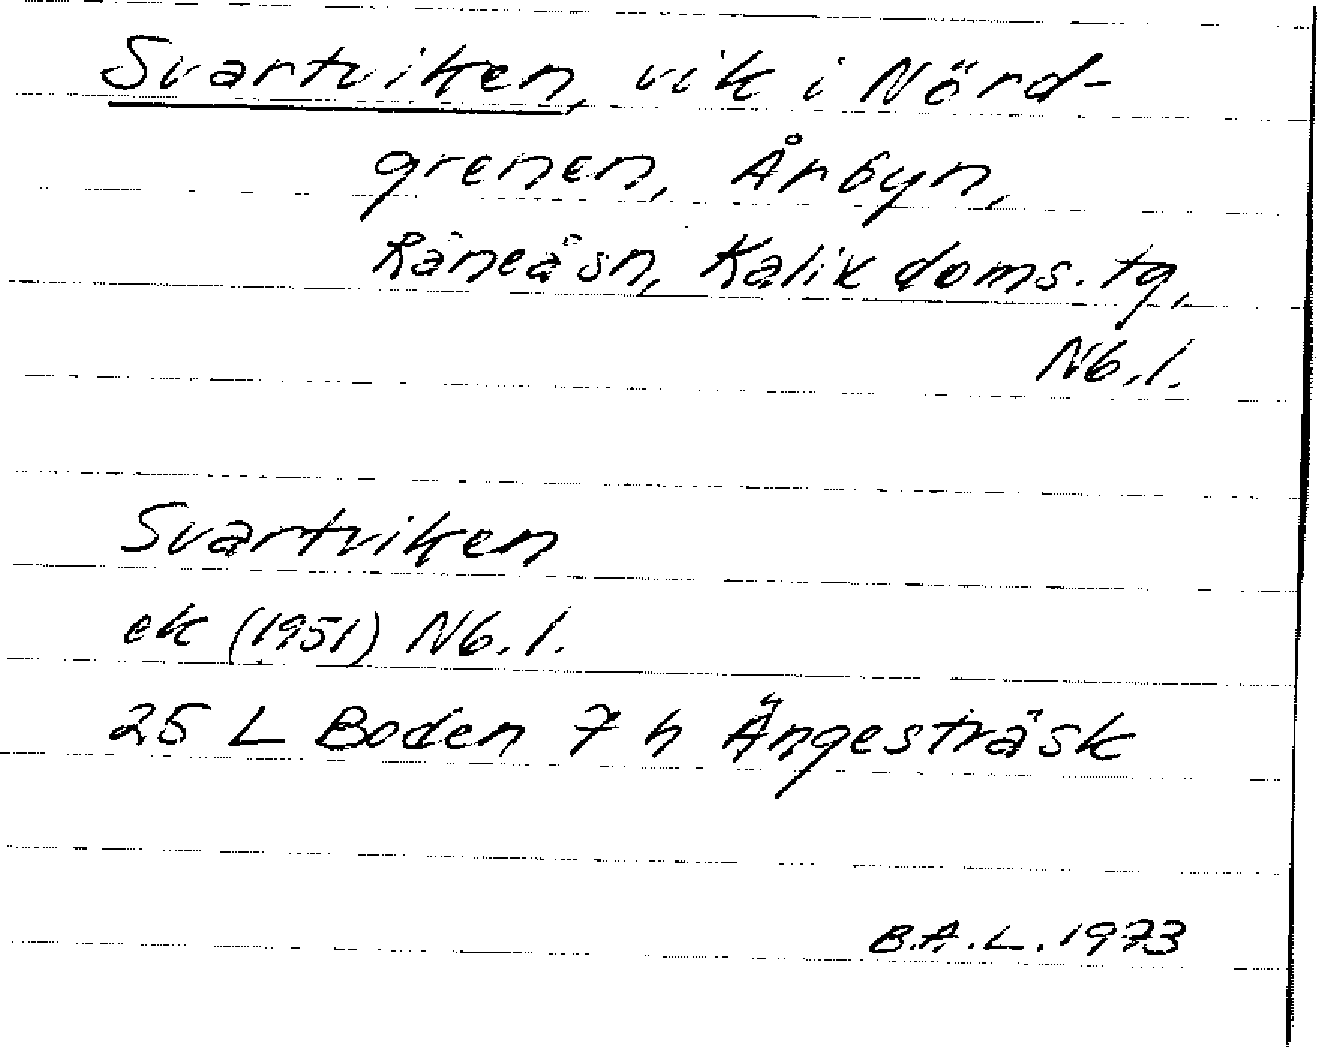 Svartviken, vik i Nörd-
grenen, Årbyn,
Råneå sn, Kalix doms. tg,
Nb.l.
Svartviken
ek (1951) Nb.l.
25 L Boden 7 h Ängesträsk
B.A.L. 1973